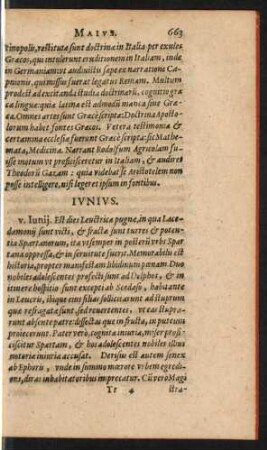 MAIVS. 663
tinopoli, restituta sunt doctrina in Italia per exules
Græcos, qui intulerunt eruditionem in Italiam, inde
in Germaniam: vt audiuistis sæpe ex narratione Ca-
pnionis, qui missus fuerat legatus Romam. Multum
prodest ad excitanda studia doctrinarū, cognitio græ-
cæ linguæ: quia latina est admodū manca sine Græ-
ca. Omnes artes sunt Græcè scriptæ: Doctrina Aposto-
lorum habet fontes Græcos. Vetera testimonia &
certamina ecclesiæ fuerunt Græcè scripta: sic Mathe-
mata, Medicina. Narrant Rodolfum Agricolam fu-
isse motum vt proficisceretur in Italiam, & audiret
Theodorū Gazam: quia videbat se Aristotelem non
posse intelligere, nisi legeret ipsum in fontibus.
IVNIVS.
v. Iunij. Est dies Leuctricæ pugnæ, in qua Lace-
dæmonij sunt victi, & fractæ sunt turres & poten-
tia Spartanorum, ita vt semper in posterū vrbs Spar-
tana oppressa, & in seruitute fuerit. Memorabilis est
historia, propter manifestam libidinum pœnam. Duo
nobiles adolescentes profecti sunt ad Delphos, & in
itinere hospitio sunt excepti ab Scedaso, habitante
in Leuctris, illique eius filias sollicitarunt ad stuprum
quæ cum refragatæ sunt sed reuertentes, vi eas stuprà-
runt absente patre: dissectas que in frusta, in puteum
proiecerunt. Pater verò, cognita iniuria, miser profi-
ciscitur Spartam, & hos adolescentes nobiles illius
notaria iniuria accusat. Derisus est autem senex
ab Ephoris, vnde in summo mœrore vrbem egredi-
ens, diras inhabitatoribus imprecatur. Cū verò Magi
Tt 4 stra-